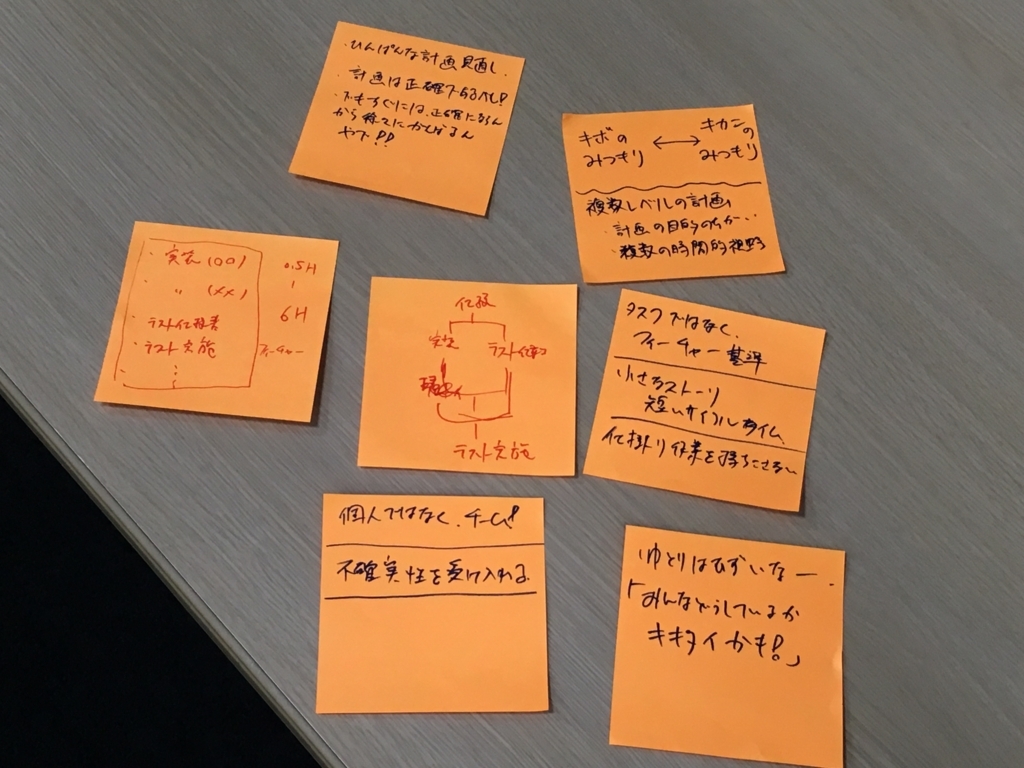 ・ひんぱんな計画見直し.
・計画は正確であるべし!
・でもすぐには、正確にならん
から捨てにかかるん
やで!!
キボの
みつもり
↔
キカンの
みつもり
複数レベルの計画
・計画の目的のちがい
・複数の時間的視野
・実装(○○) 0.5H
・〃(××) 6H
・テスト仕様書
・テスト実施 フィーチャー
仕様
実装 テスト仕様
テスト実施
タスクではなく、
フィーチャー基準
小さなストーリ
短いサイクルタイム
仕掛り作業を持ちこさない
個人ではなく、チーム!
不確実性を受け入れる.
ゆとりはむずいなー.
「みんなどうしているか
キキタイかも!」